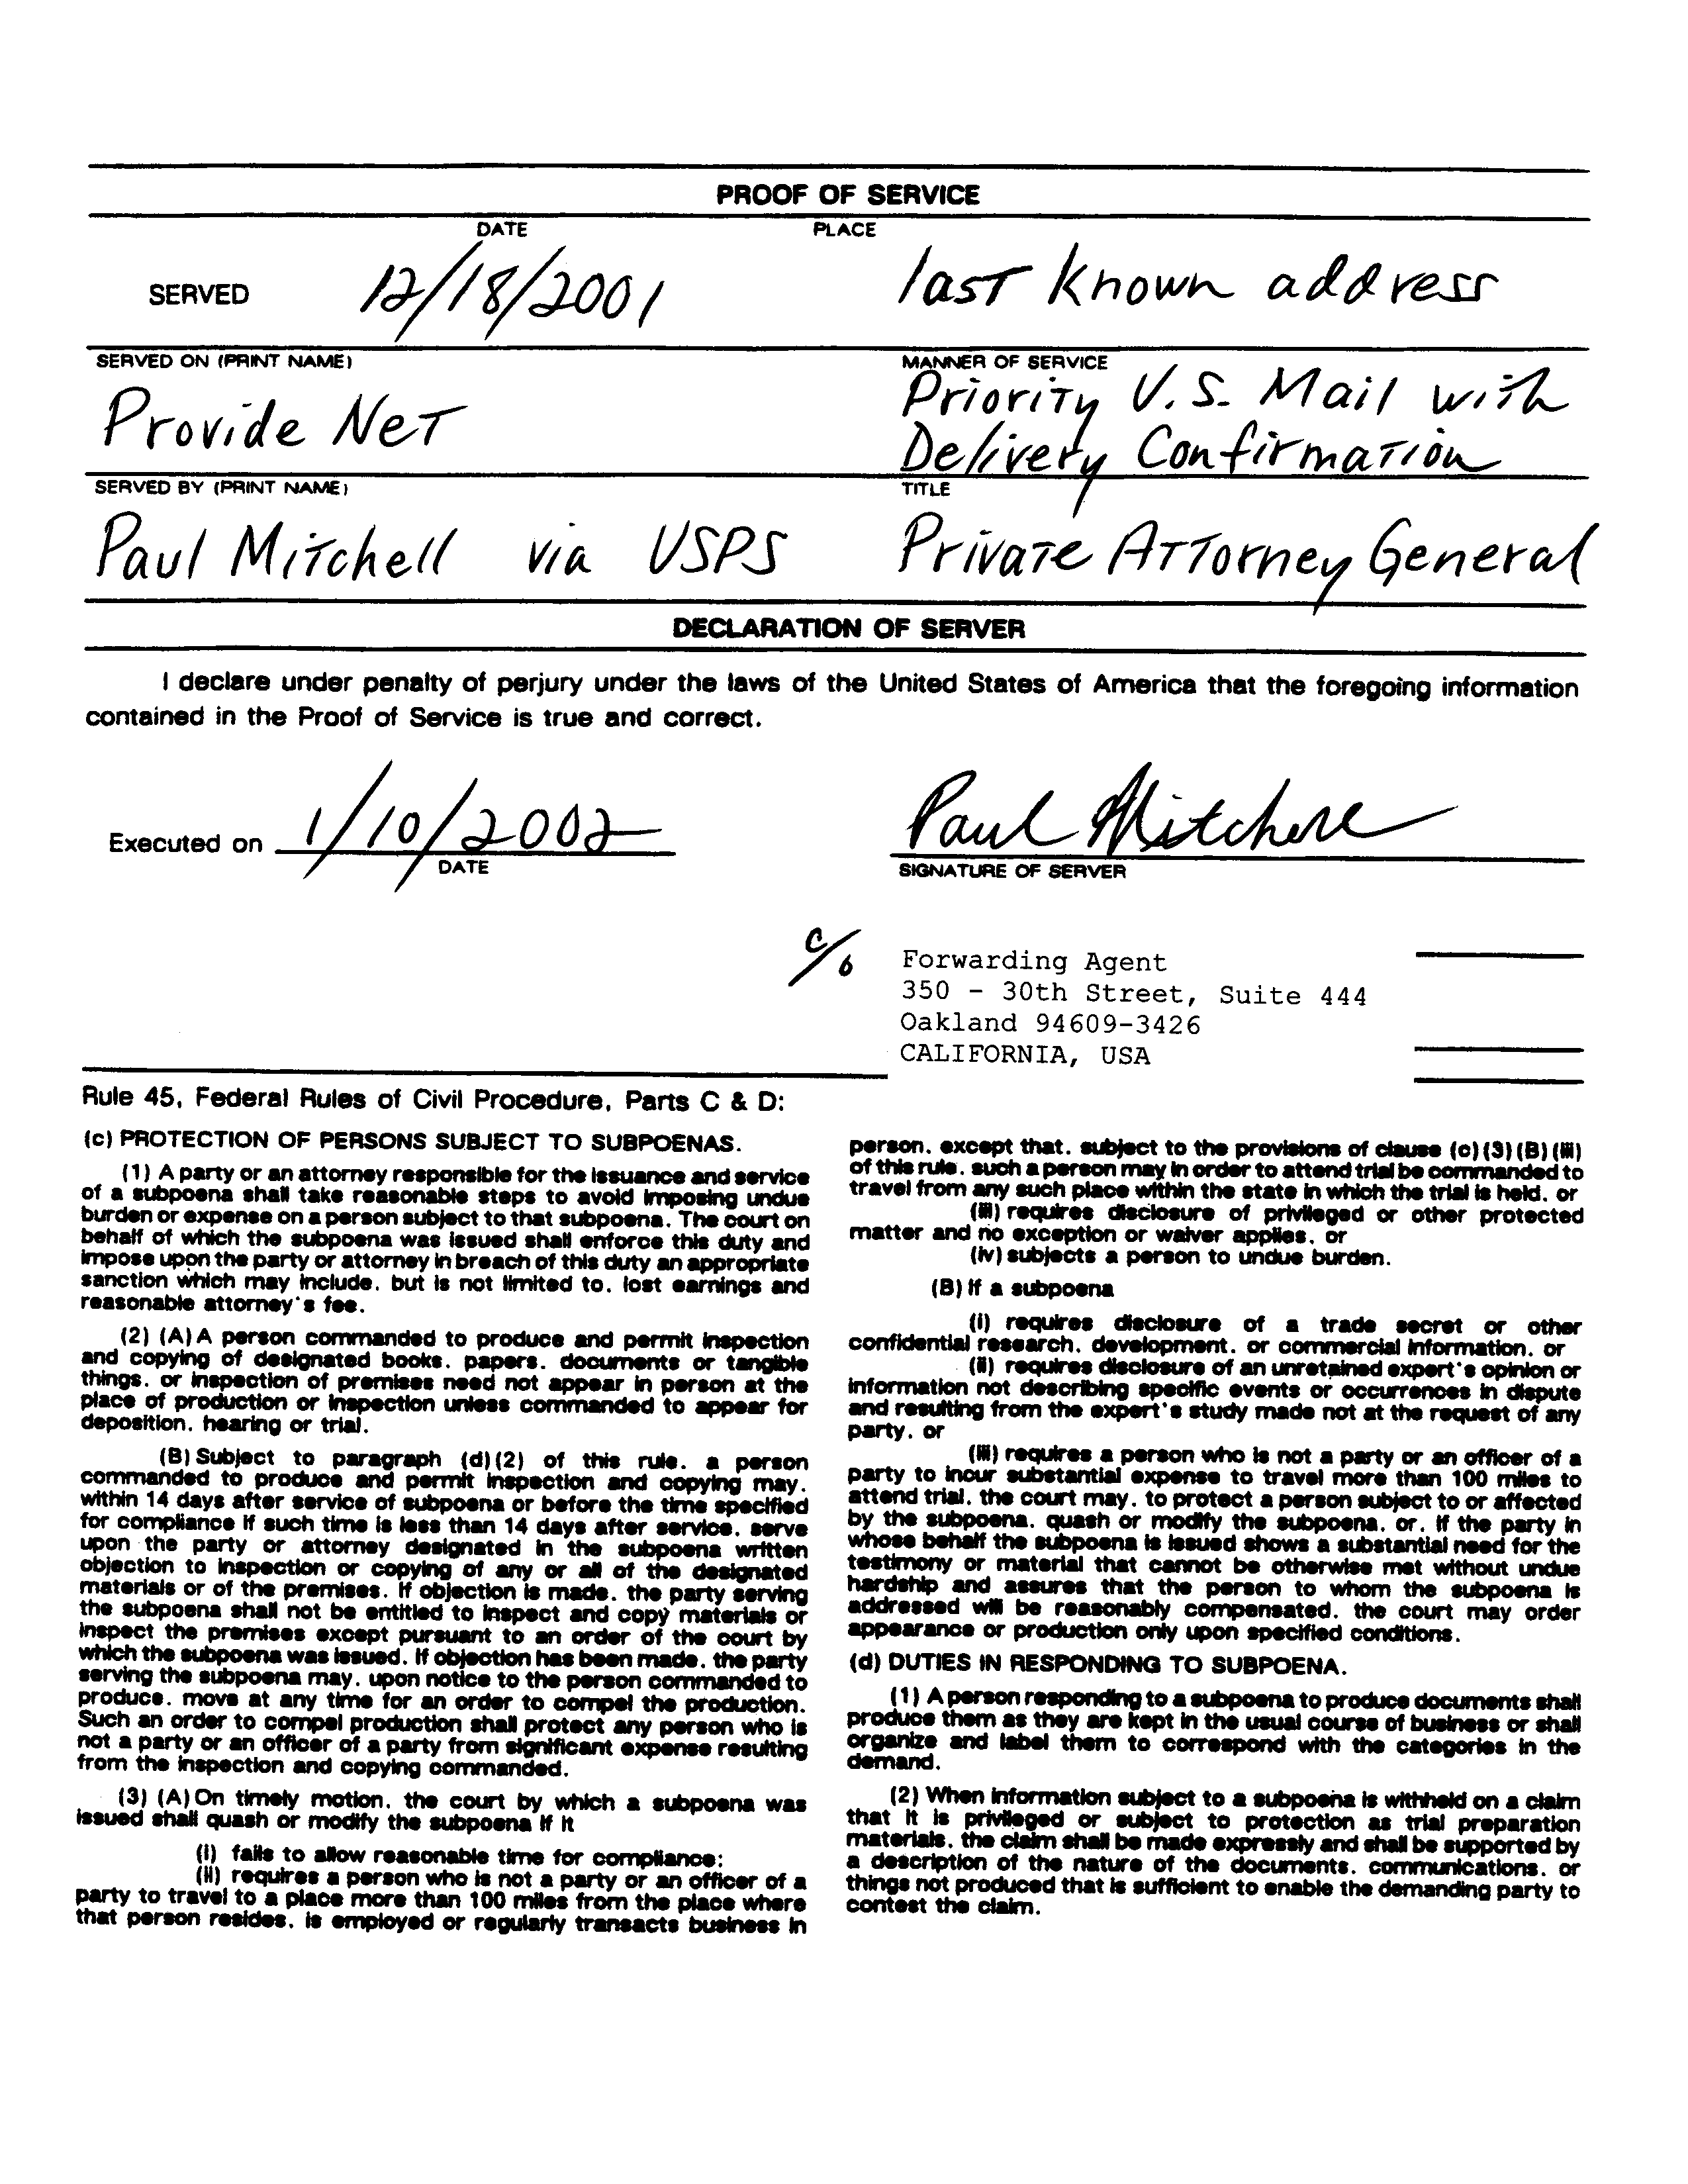 PROOF OF SERVICE
DATE PLACE
SERVED 12/18/2001 last known address
SERVED ON (PRINT NAME) MANNER OF SERVICE
Provide Net Priority U.S. Mail with
Delivery Confirmation
SERVED BY (PRINT NAME) TITLE
Paul Mitchell via USPS Private Attorney General
DECLARATION OF SERVER
I declare under penalty of perjury under the laws of the United States of America that the foregoing information
contained in the Proof of Service is true and correct.
Executed on 1/10/2002 Paul Mitchell
DATE SIGNATURE OF SERVER
c/o Forwarding Agent
350 - 30th Street, Suite 444
Oakland 94609-3426
CALIFORNIA, USA
Rule 45, Federal Rules of Civil Procedure, Parts C & D:
(c) PROTECTION OF PERSONS SUBJECT TO SUBPOENAS.
(1) A party or an attorney responsible for the issuance and service
of a subpoena shall take reasonable steps to avoid imposing undue
burden or expense on a person subject to that subpoena. The court on
behalf of which the subpoena was issued shall enforce this duty and
impose upon the party or attorney in breach of this duty an appropriate
sanction which may include, but is not limited to, lost earnings and
reasonable attorney's fee.
(2) (A) A person commanded to produce and permit inspection
and copying of designated books, papers, documents or tangible
things, or inspection of premises need not appear in person at the
place of production or inspection unless commanded to appear for
deposition, hearing or trial.
(B) Subject to paragraph (d)(2) of this rule, a person
commanded to produce and permit inspection and copying may,
within 14 days after service of subpoena or before the time specified
for compliance if such time is less than 14 days after service, serve
upon the party or attorney designated in the subpoena written
objection to inspection or copying of any or all of the designated
materials or of the premises. If objection is made, the party serving
the subpoena shall not be entitled to inspect and copy materials or
inspect the premises except pursuant to an order of the court by
which the subpoena was issued. If objection has been made, the party
serving the subpoena may, upon notice to the person commanded to
produce, move at any time for an order to compel the production.
Such an order to compel production shall protect any person who is
not a party or an officer of a party from significant expense resulting
from the inspection and copying commanded.
(3) (A) On timely motion, the court by which a subpoena was
issued shall quash or modify the subpoena if it
(i) fails to allow reasonable time for compliance;
(ii) requires a person who is not a party or an officer of a
party to travel to a place more than 100 miles from the place where
that person resides, is employed or regularly transacts business in
person, except that, subject to the provisions of clause (c)(3)(B)(iii)
of this rule, such a person may in order to attend trial be commanded to
travel from any such place within the state in which the trial is held, or
(iii) requires disclosure of privileged or other protected
matter and no exception or waiver applies, or
(iv) subjects a person to undue burden.
(B) If a subpoena
(i) requires disclosure of a trade secret or other
confidential research, development, or commercial information, or
(ii) requires disclosure of an unretained expert's opinion or
information not describing specific events or occurrences in dispute
and resulting from the expert's study made not at the request of any
party, or
(iii) requires a person who is not a party or an officer of a
party to incur substantial expense to travel more than 100 miles to
attend trial, the court may, to protect a person subject to or affected
by the subpoena, quash or modify the subpoena, or, if the party in
whose behalf the subpoena is issued shows a substantial need for the
testimony or material that cannot be otherwise met without undue
hardship and assures that the person to whom the subpoena is
addressed will be reasonably compensated, the court may order
appearance or production only upon specified conditions.
(d) DUTIES IN RESPONDING TO SUBPOENA.
(1) A person responding to a subpoena to produce documents shall
produce them as they are kept in the usual course of business or shall
organize and label them to correspond with the categories in the
demand.
(2) When information subject to a subpoena is withheld on a claim
that it is privileged or subject to protection as trial preparation
materials, the claim shall be made expressly and shall be supported by
a description of the nature of the documents, communications, or
things not produced that is sufficient to enable the demanding party to
contest the claim.